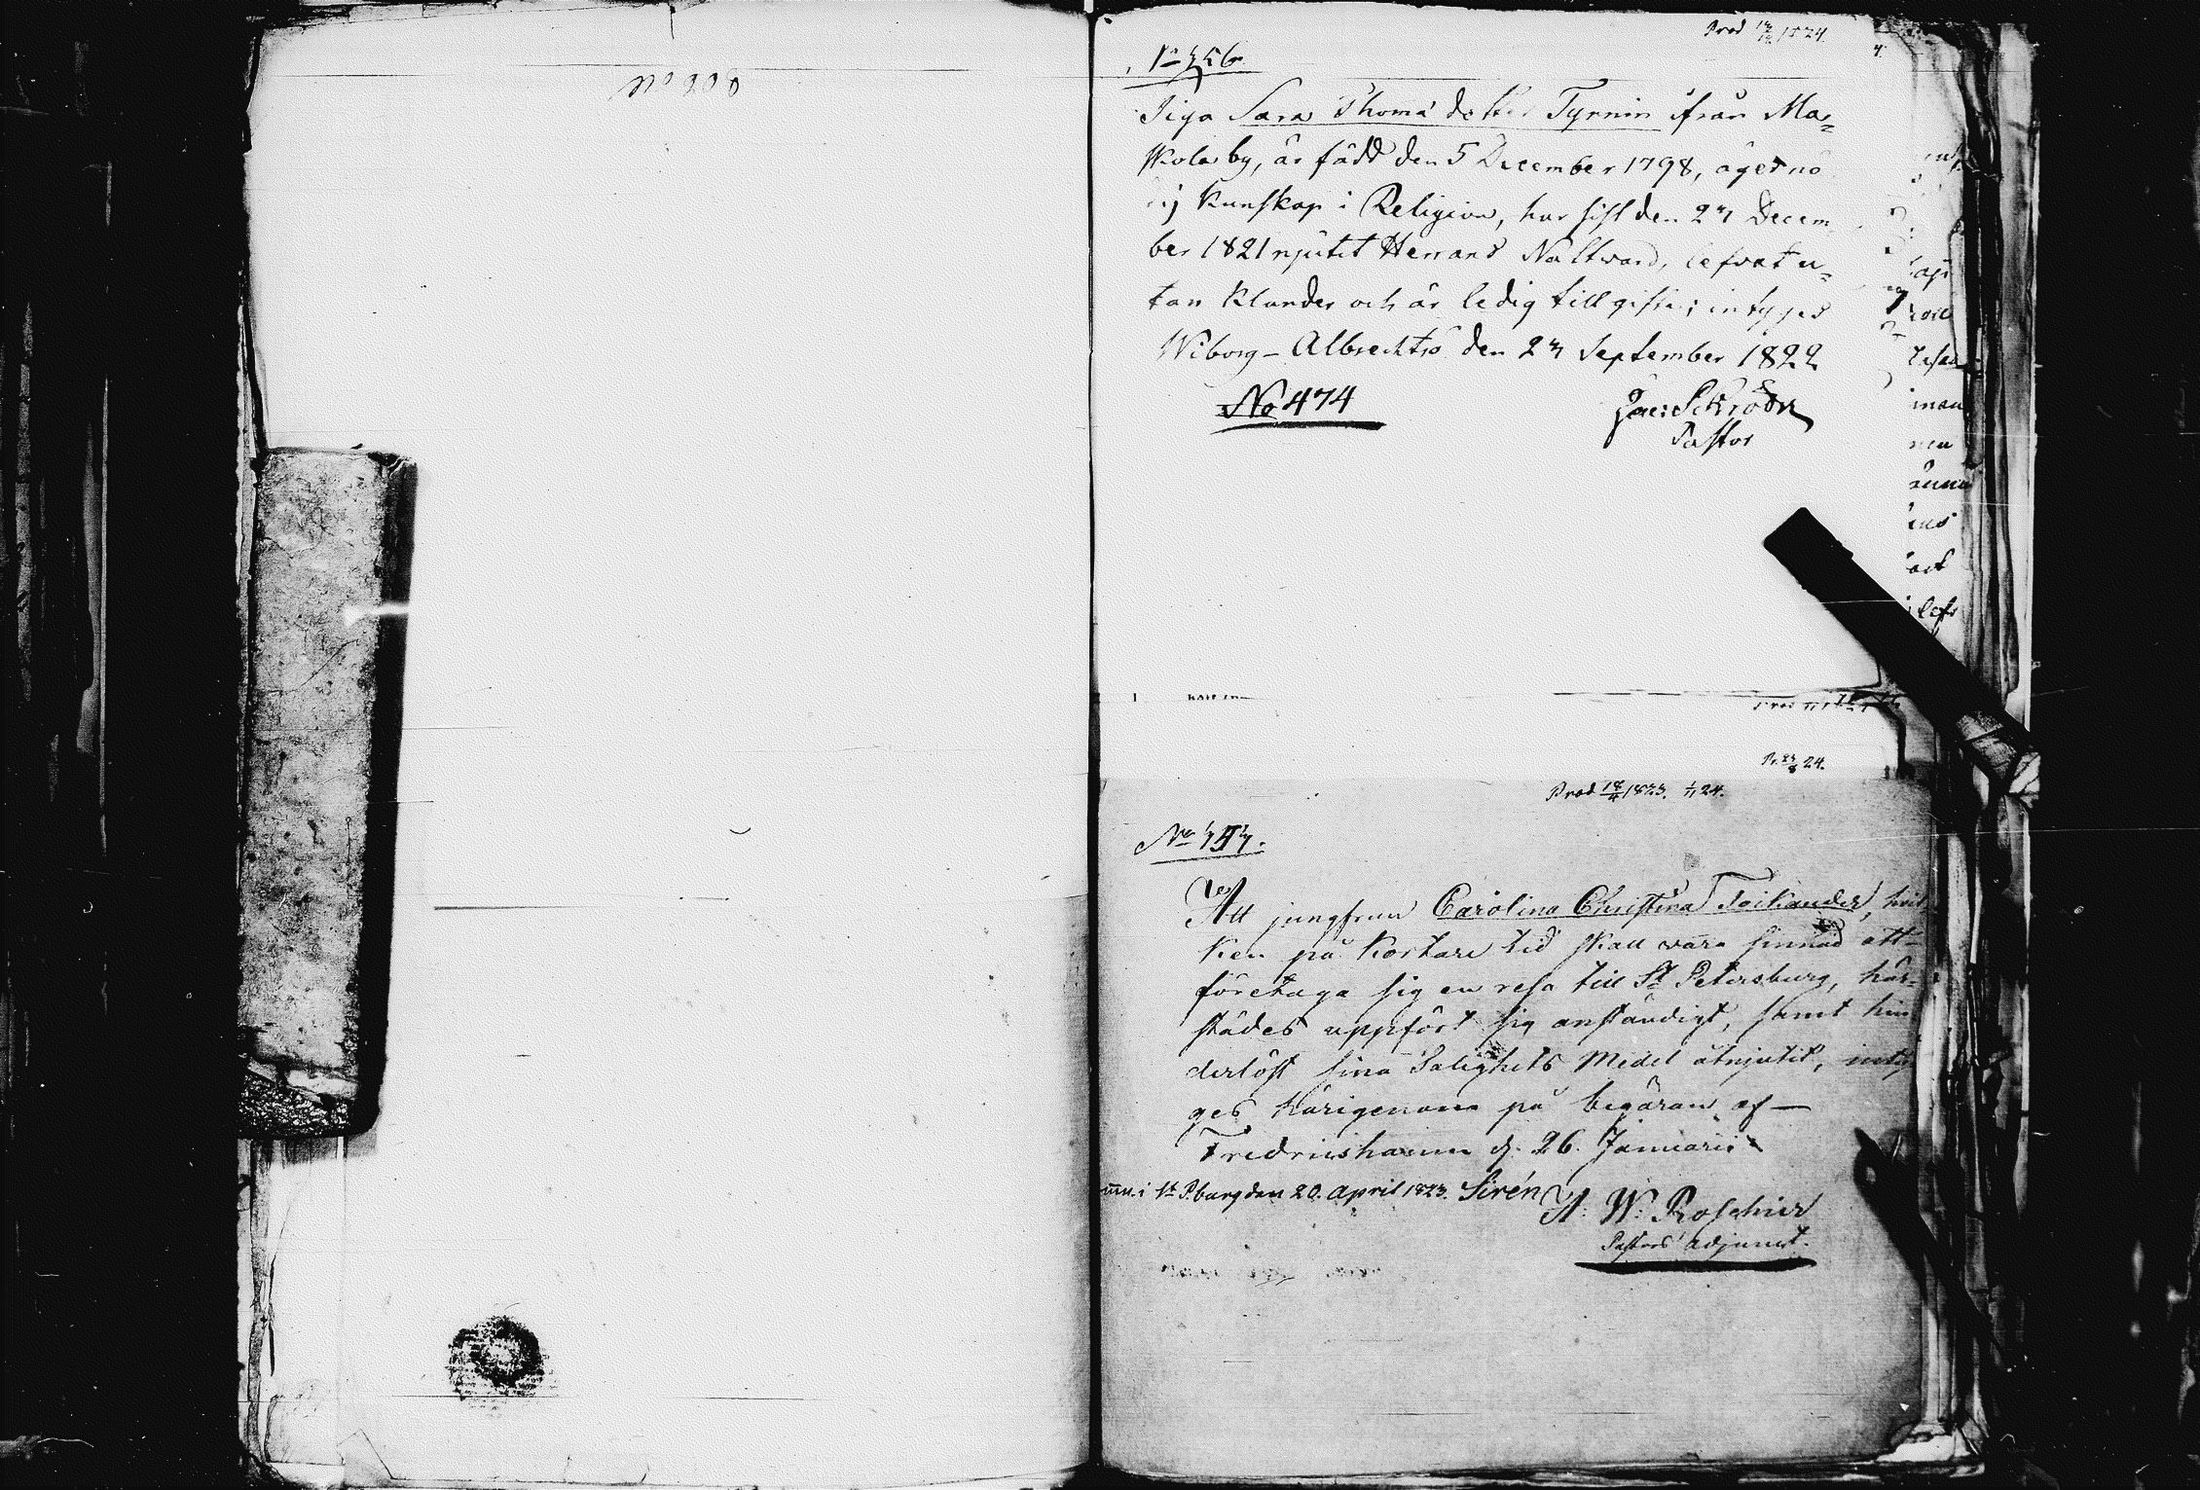 Prod 1824.
Piga Sara Thomä dotter Tyrnin ifrån Ma=
skola by, är född den 5 December 1798, äger nö
ij kunskap i Religion, har sist den 27 Decem
ber 1821 njutit Herrans Nattvard, lefvat u=
tan klander och är ledig till gifte; intyges
Wiborg - Albrechtsro den 27 September 1822
No 474
Jac: Schröder
Pastor
24.
Prod 18/4 1823. 24.
Att jungfrun Carolina Christina Toikander, hvil
ken på kortare tid skall vara sinnad att
företaga sig en resa till St Petersburg, här=
städes uppfört sig anständigt, samt hin
derlöst sina Salighets Medel åtnjutit, inty
ges härigenom på begäran af —
Fredricshamn d. 26. Januarii
i St P.burg den 20. April 1823. Sirén
A: W: Roschier
Pastors adjunct.